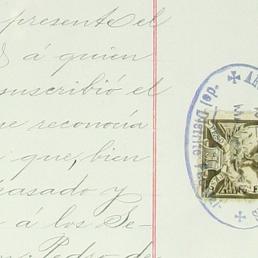 presente el
á quien
suscribió el
re reconocia
i que, bien
hasado y
á los Se-
Pedro de
del Distrito